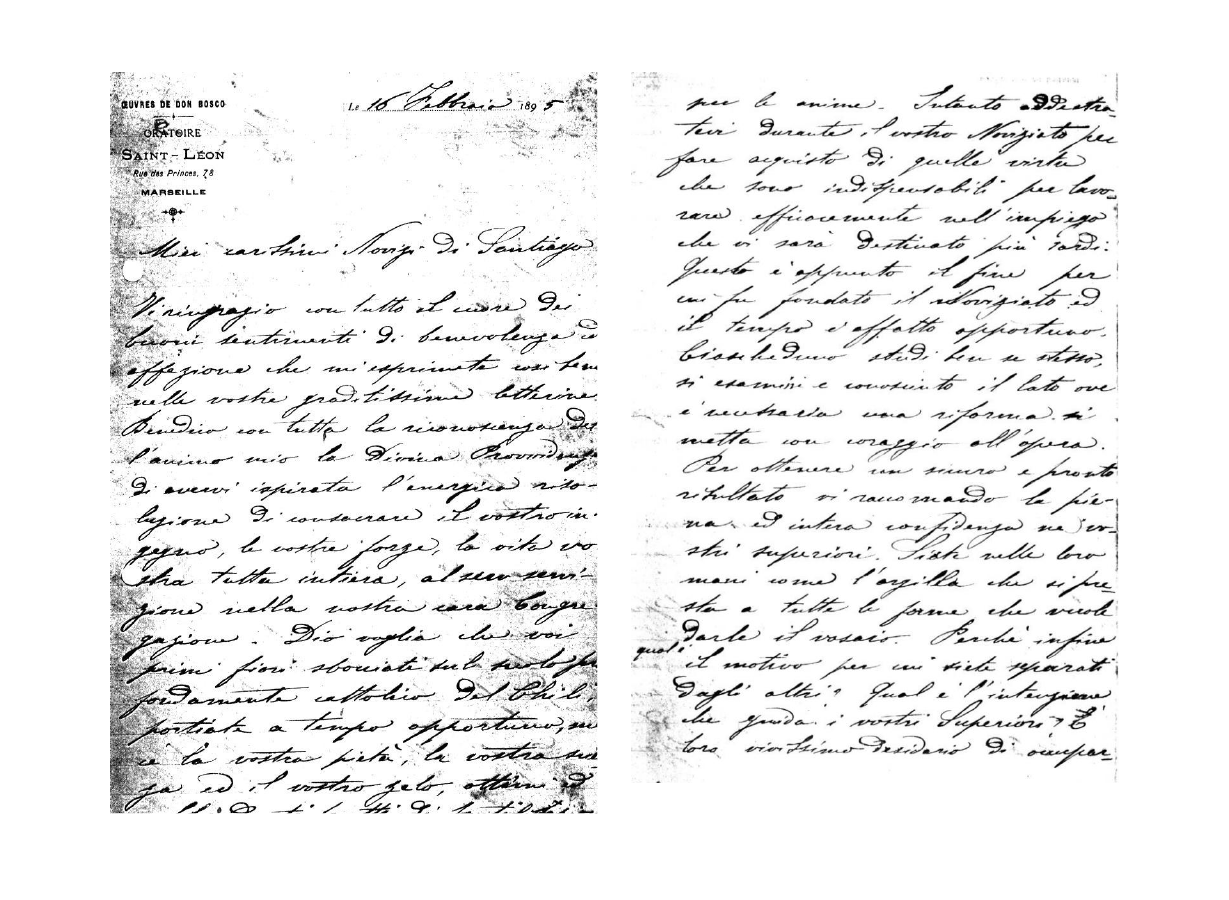 ŒUVRES DE DON BOSCO
ORATOIRE
SAINT-LÉON
Rue des Princes, 78
MARSEILLE
Le 16 Febbraio 1895
Miei carissimi Novizi di Santiago
Vi ringrazio con tutto il cuore dei
buoni sentimenti di benevolenza e
affezione che mi esprimete così bene
nelle vostre graditissime letterine.
Benedico con tutta la riconoscenza del
l'animo mio la Divina Provvidenza
di avervi ispirata l'energica riso-
luzione di consacrare il vostro in-
gegno, le vostre forze, la vita vo
stra tutta intiera, al suo servi-
zione nella nostra cara Congre
gazione. Dio voglia che voi
primi fiori sbociati sul suolo pro
fondamente cattolico del Chilì
portiate a tempo opportuno,
la vostra pietà, la vostra
za ed il vostro zelo, ottimi ed
per le anime. Intanto addestra-
tevi durante il vostro Noviziato per
fare acquisto di quelle virtù
che sono indispensabili per lavo-
rare efficacemente nell'impiego
che vi sarà destinato più tardi.
Questo è appunto il fine per
cui fu fondato il Noviziato ed
il tempo è affatto opportuno.
Ciascheduno studi ben se stesso,
si esamini e conosciuto il lato ove
è necessaria una riforma si
metta con coraggio all'opera.
Per ottenere un sicuro e pronto
risultato vi racomando la pie-
na ed intera confidenza ne' vo-
stri superiori. Siate nelle loro
mani come l'argilla che si pre-
sta a tutte le forme che vuole
darle il vosaio. Perchè infine
qual è
il motivo per cui siete separati
dagli altri? Qual è l'intenzione
che guida i vostri Superiori? È
loro vivissimo desiderio di occupar-